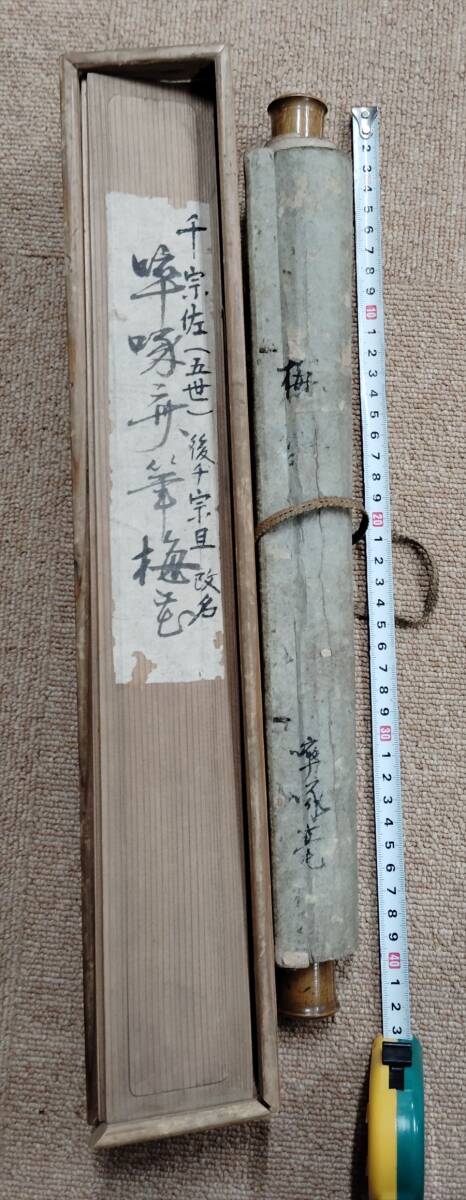 千宗佐(五世)後千宗旦改名
啐啄斎筆梅花
梅
啐啄
2 3 4 5 6 7 8 9 10 1 2 3 4 5 6 7 8 9 20 1 2 3 4 5 6 7 8 9 30 1 2 3 4 5 6 7 8 9 40 1 2 3